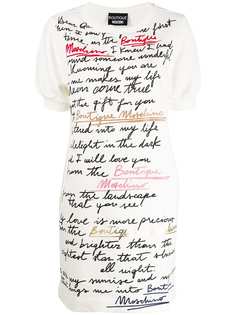 BOUTIQUE
MOSCHINO
first
time, in the Boutique
Moschino, I knew I had
someone wonderf
Knowing you are
me makes my life
dream come true
the gift for you
Boutique Moschino
into my life
delight in the dark
d I will love you
from the Boutique
Moschino
from the landscape
that you see!
love is more precious
the Boutiq
and brighter than the
ghtest has that
all night.
my sunrise and
ings me into Bout
Moschino